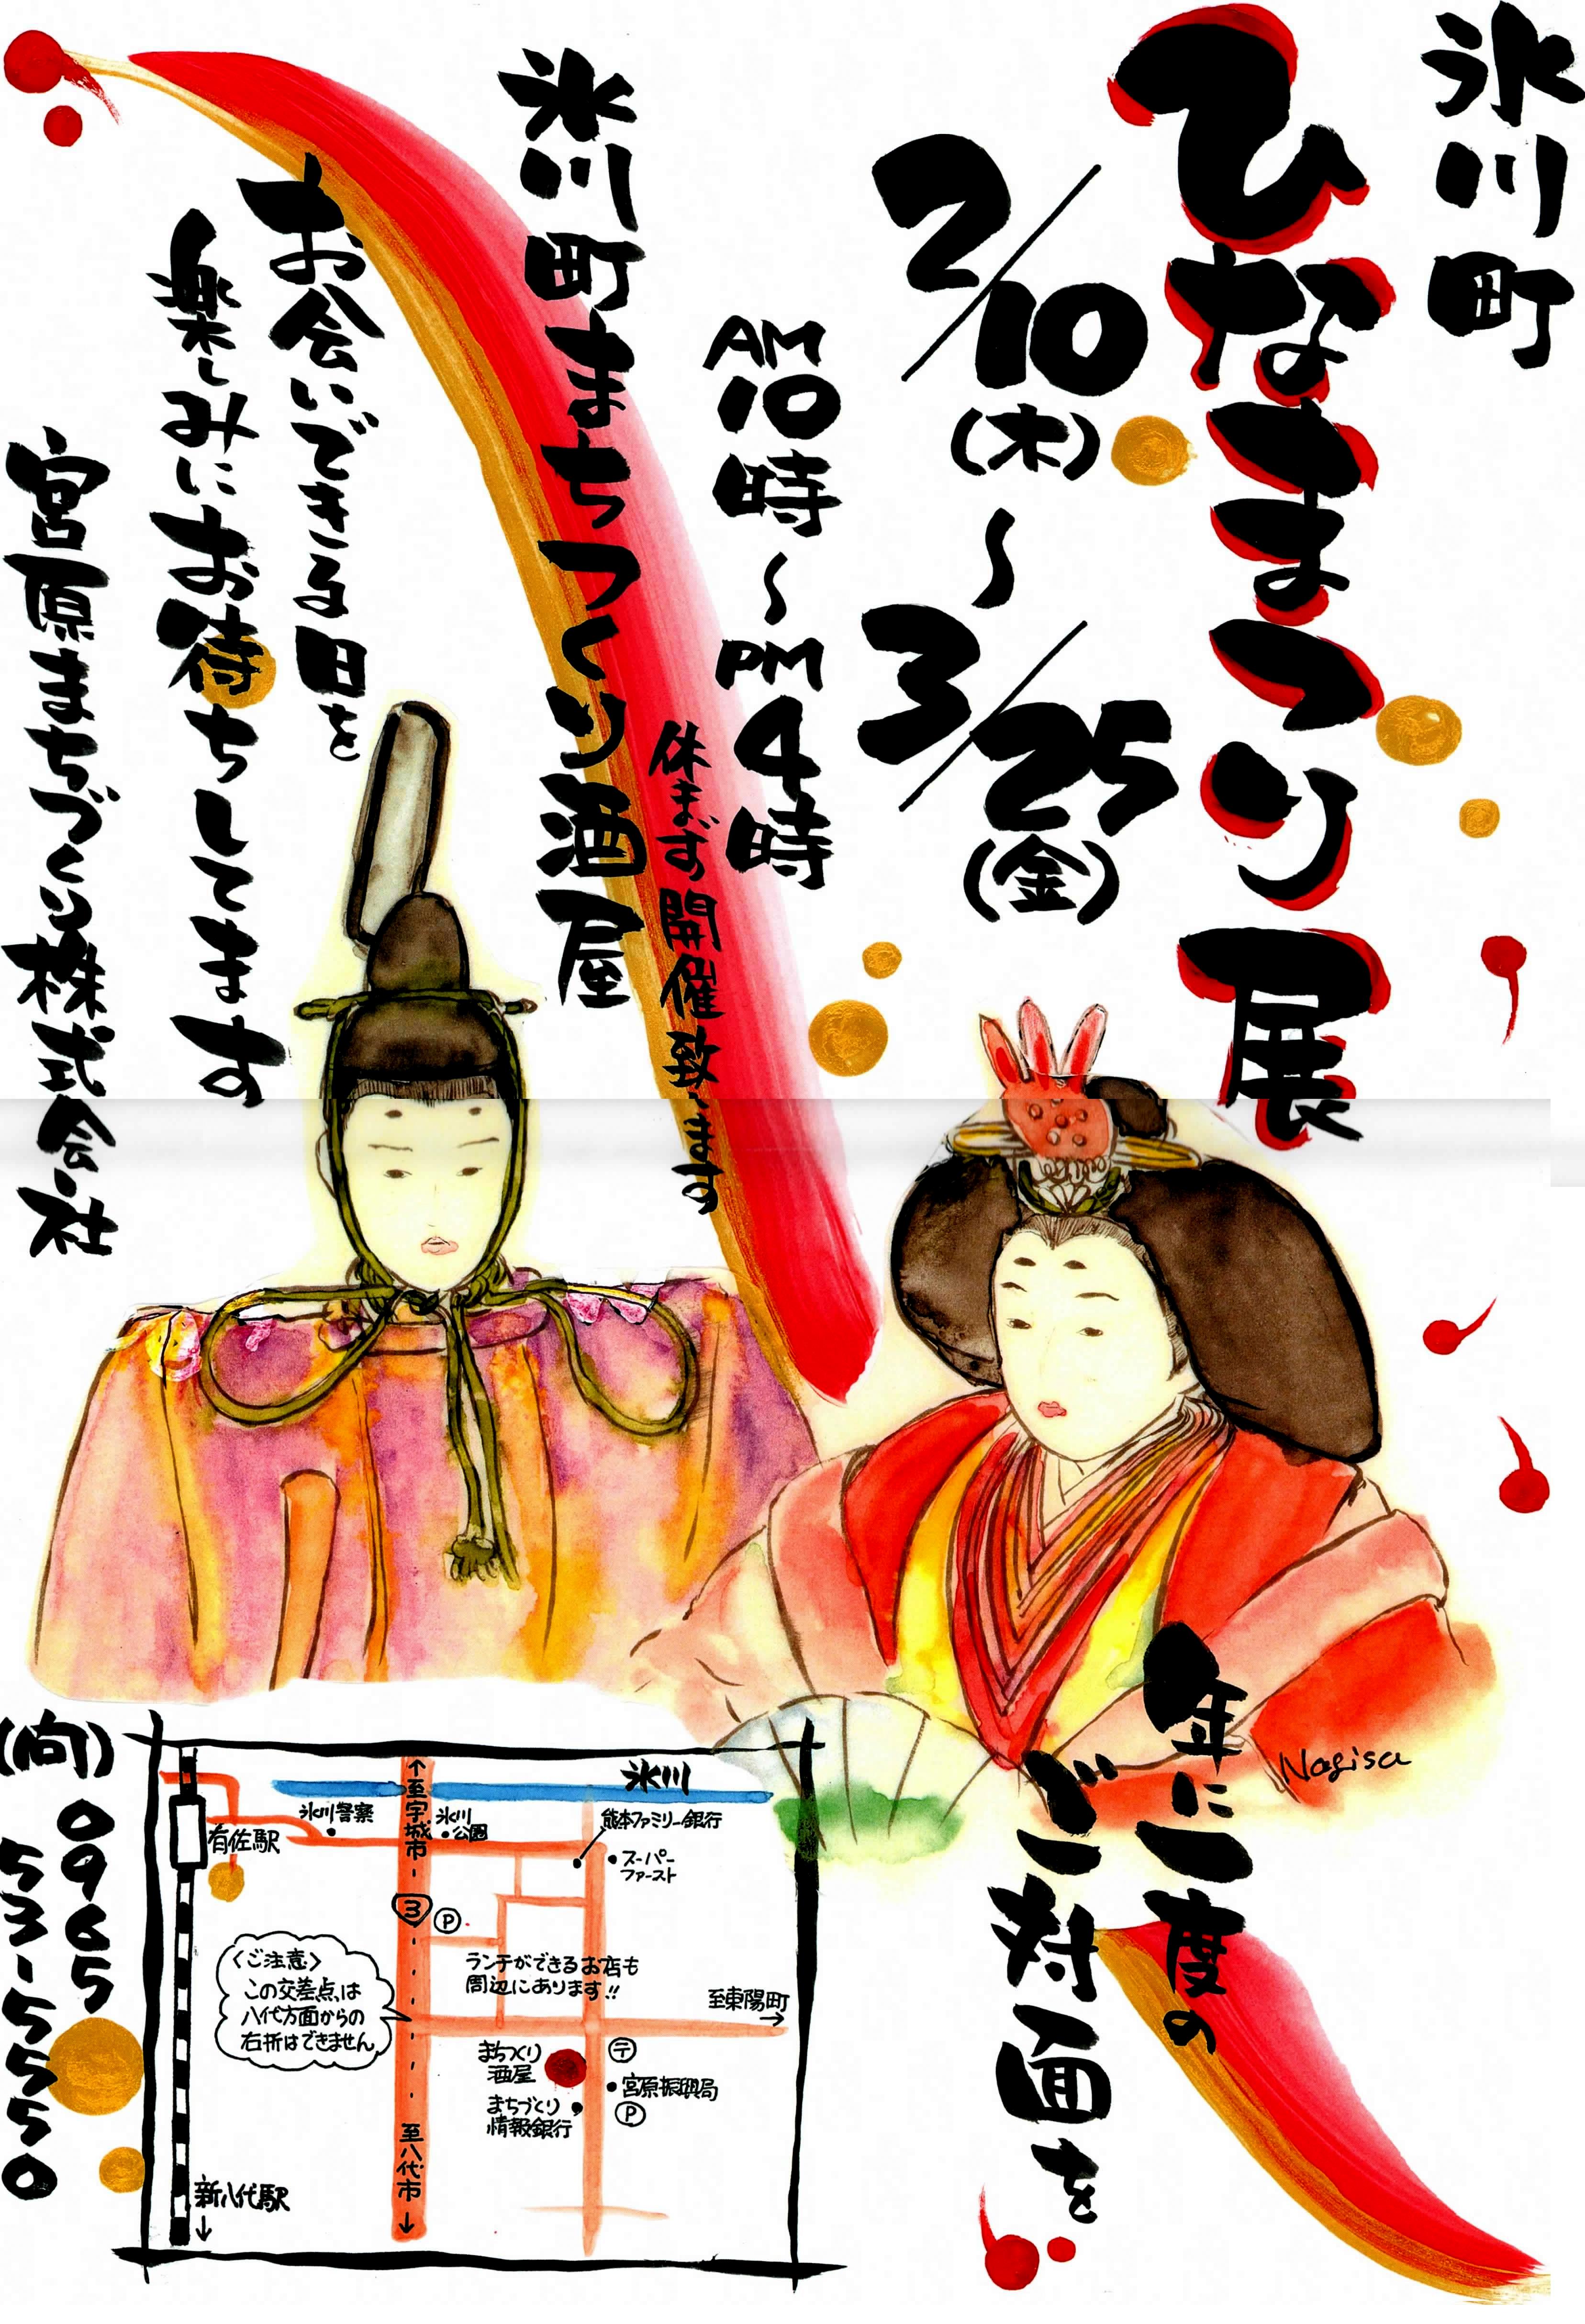 氷川町
ひなまつり展
2/10(木)～3/25(金)
AM10時～PM4時
休まず開催致します
氷川町まちつくり酒屋
お会いできる日を
楽しみにお待ちしてます
宮原まちづくり株式会社
年に一度の
ご対面を
Nagisa
(向)0965
53-5550
氷川
↑至宇城市
氷川警察
氷川公園
熊本ファミリー銀行
有佐駅
スーパーファースト
3
P
〈ご注意〉
この交差点は
八代方面からの
右折はできません
ランチができるお店も
周辺にあります!!
至東陽町
→
まちつくり
酒屋
〒
宮原振興局
P
まちづくり
情報銀行
至八代市
↓
新八代駅
↓